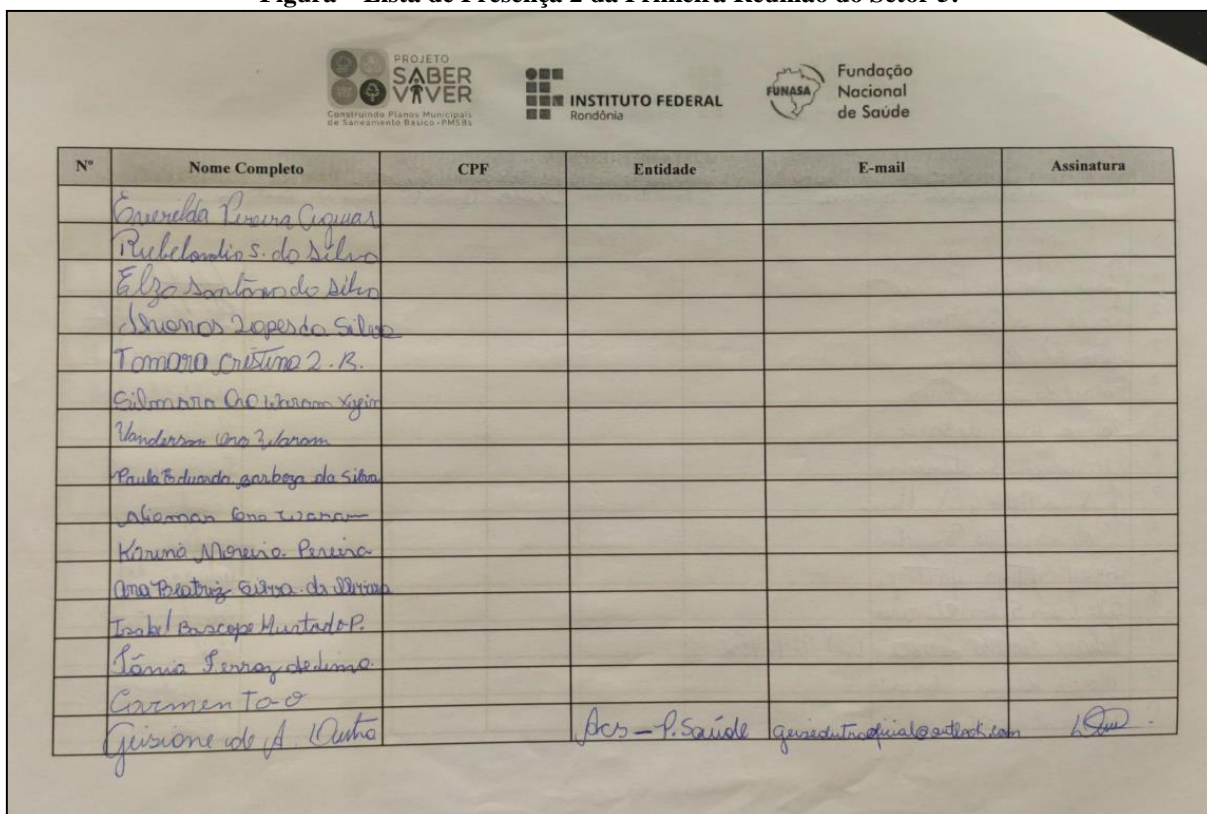 Figura – Lista de Presença 2 da Primeira Reunião do Setor 3.
PROJETO
SABER
VIVER
Construindo Planos Municipais
de Saneamento Básico - PMSBs
INSTITUTO FEDERAL
Rondônia
FUNASA
Fundação
Nacional
de Saúde
Nº Nome Completo CPF Entidade E-mail Assinatura
Pereira
Rubelandio S. da Silva
Elza da Silva
Lopes da Silva
Tamara Cristina
Silmara Oro Waram Xijein
Vanderson Oro Waram
Paula Eduarda barboza da Silva
Oro Waram
Karina Moreira Pereira
Ana Beatriz da
Isabel Buscope Hurtado P.
Tânia Ferraz de Lima
Carmen
Geisione de A. Dutra Acs - P. Saúde geisedutraoficial@outlook.com